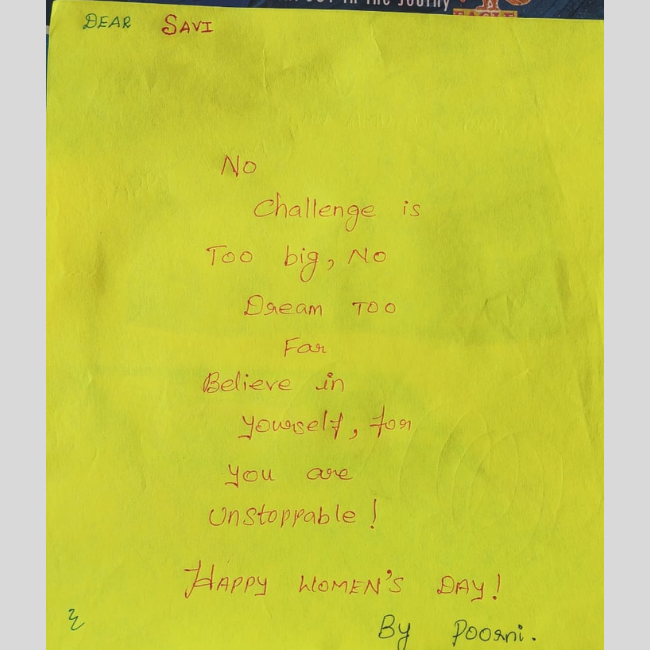 IN THE JOURNY
DEAR SAVI
No
Challenge is
Too big, No
Dream TOO
Far
Believe in
yourself, for
you are
Unstoppable!
HAPPY WOMEN'S DAY!
By Poorni.